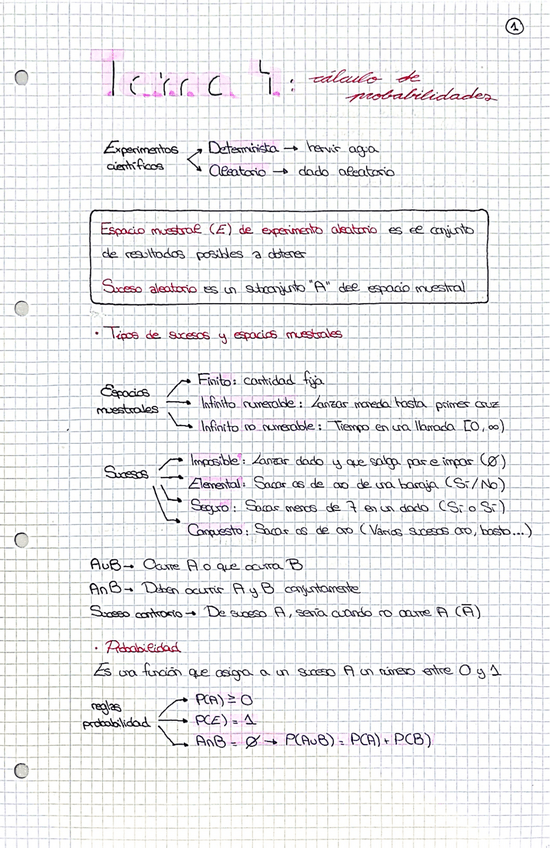 1
Tema 4: cálculo de
probabilidades
Experimentos
científicos
Determinista → hervir agua
Aleatorio → dado aleatorio
Espacio muestral (E) de experimento aleatorio es el conjunto
de resultados posibles a obtener
Suceso aleatorio es un subconjunto "A" del espacio muestral
· Tipos de sucesos y espacios muestrales
Espacios
muestrales
Finito: cantidad fija
Infinito numerable: Lanzar moneda hasta primer cruz
Infinito no numerable: Tiempo en una llamada [0, ∞)
Sucesos
Imposible: Lanzar dado y que salga par e impar (Ø)
Elemental: Sacar as de oro de una baraja (Sí/No)
Seguro: Sacar menos de 7 en un dado (Sí o Sí)
Compuesto: Sacar as de oro (Varios sucesos oro, basto...)
A∪B → Ocurre A o que ocurra B
A∩B → Deben ocurrir A y B conjuntamente
Suceso contrario → De suceso A, sería cuando no ocurre A (Ā)
· Probabilidad
Es una función que asigna a un suceso A un número entre 0 y 1
reglas
probabilidad
P(A) ≥ 0
P(E) = 1
A∩B = Ø → P(A∪B) = P(A) + P(B)